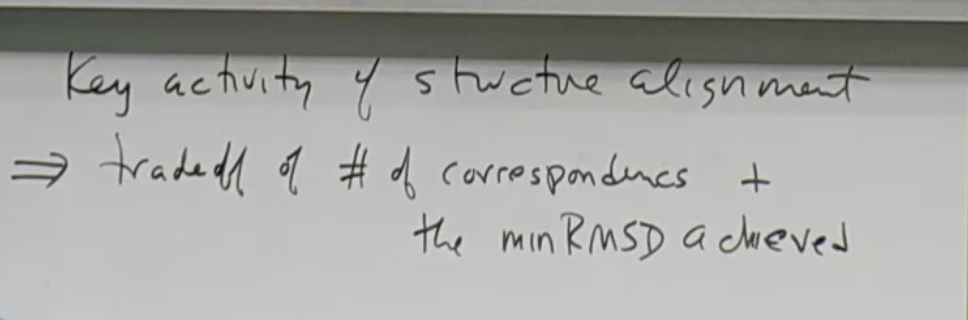 Key activity of structure alignment
⇒ tradeoff of # of correspondences +
the min RMSD achieved